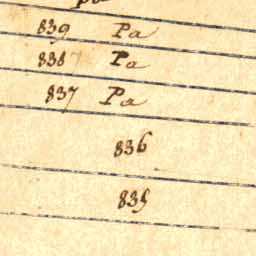 839 Pa
838 Pa
837 Pa
836
835